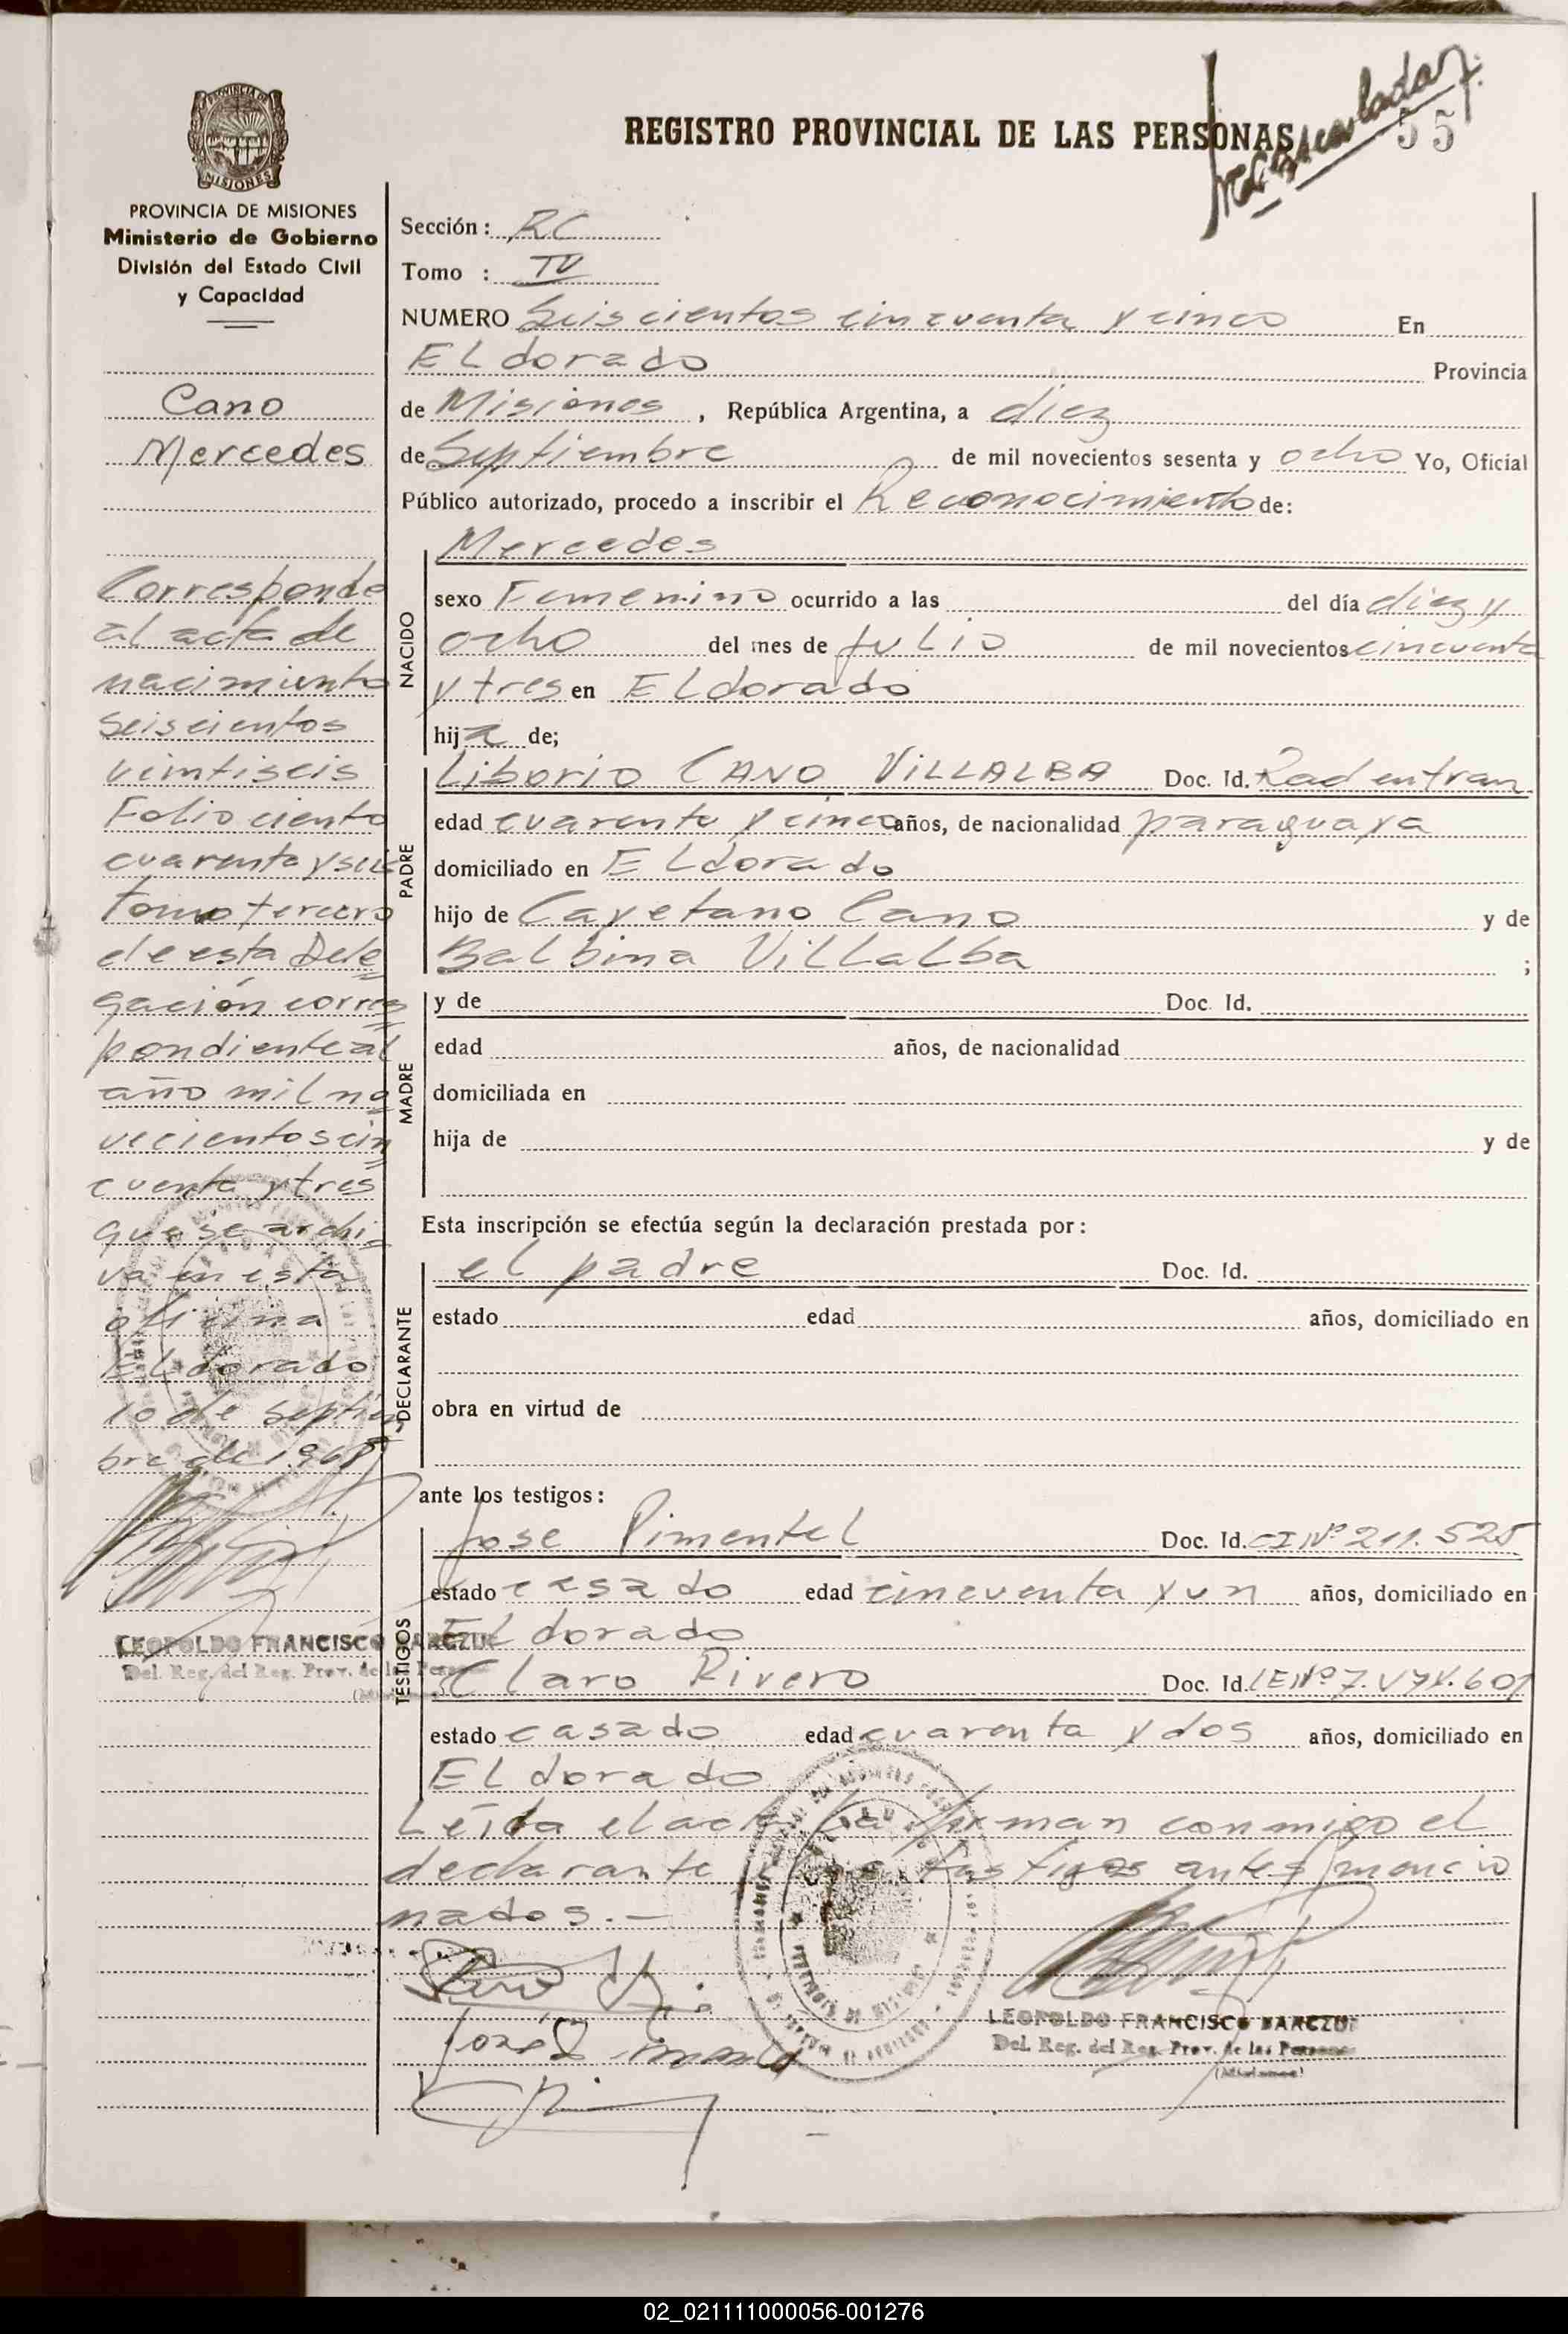 REGISTRO PROVINCIAL DE LAS PERSONAS
55
PROVINCIA DE MISIONES
Ministerio de Gobierno
División del Estado Civil
y Capacidad
Cano
Mercedes
Corresponde
al acta de
nacimiento
seiscientos
veintiseis
Folio ciento
cuarenta y seis
tomo tercero
de esta Dele
gación corres
pondiente al
año mil no
vecientos cin
cuenta y tres
que se archi
va en esta
oficina
Eldorado
10 de septiem
bre de 1968
LEOPOLDO FRANCISCO
Del. Reg. del Reg. Prov. de las Personas
Sección: RC
Tomo : IV
NUMERO Seiscientos cincuenta y cinco En
Eldorado Provincia
de Misiones, República Argentina, a diez
de Septiembre de mil novecientos sesenta y ocho Yo, Oficial
Público autorizado, procedo a inscribir el Reconocimiento de:
NACIDO
Mercedes
sexo Femenino ocurrido a las del día diez y
ocho del mes de Julio de mil novecientos cincuenta
y tres en Eldorado
hija de;
PADRE
Liborio CANO VILLALBA Doc. Id. Rad en tram
edad cuarenta y cinco años, de nacionalidad paraguaya
domiciliado en Eldorado
hijo de Cayetano Cano y de
Balbina Villalba ;
MADRE
y de Doc. Id.
edad años, de nacionalidad
domiciliada en
hija de y de
Esta inscripción se efectúa según la declaración prestada por:
DECLARANTE
el padre Doc. Id.
estado edad años, domiciliado en
obra en virtud de
ante los testigos:
TESTIGOS
Jose Pimentel Doc. Id. CI Nº 211.525
estado casado edad cincuenta y un años, domiciliado en
Eldorado
Claro Rivero Doc. Id. LE Nº 7.
estado casado edad cuarenta y dos años, domiciliado en
Eldorado
Leída el acta la firman conmigo el
declarante y los testigos antes mencio
nados.-
LEOPOLDO FRANCISCO
Del. Reg. del Reg. Prov. de las Personas
(Misiones)
02_021111000056-001276